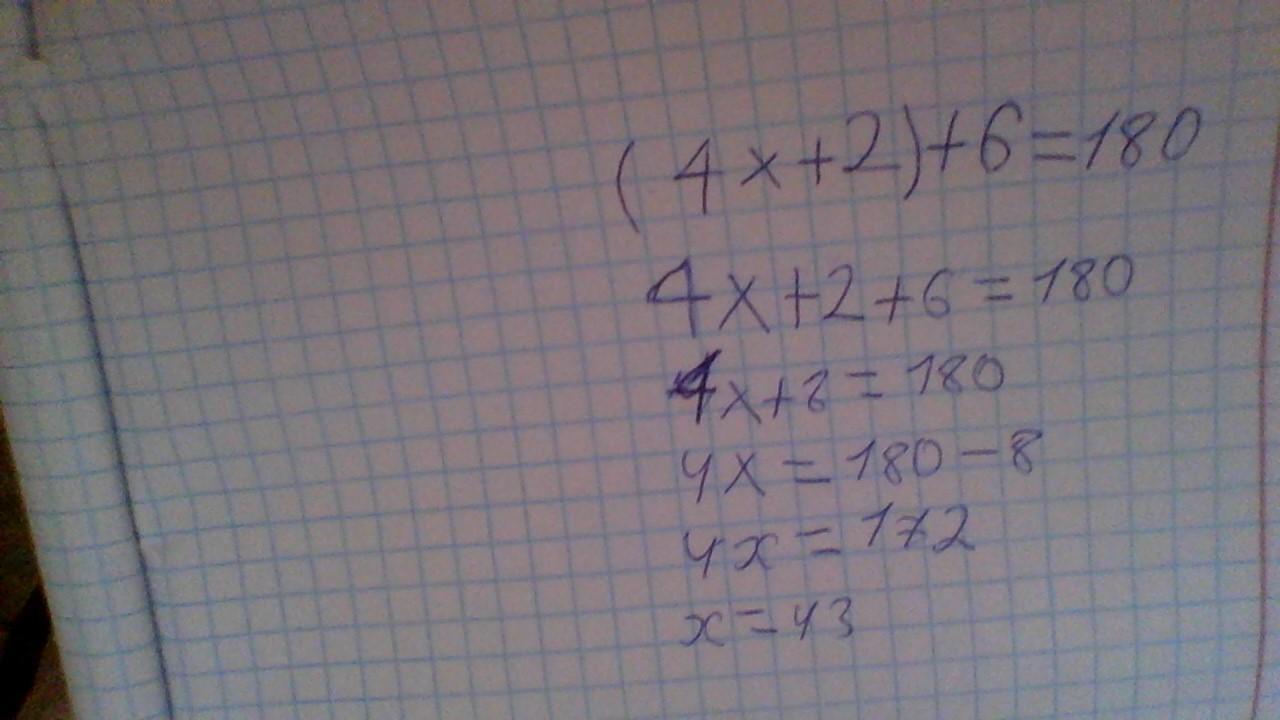 (4x+2)+6=180
4x+2+6=180
4x+8=180
4x=180-8
4x=172
x=43